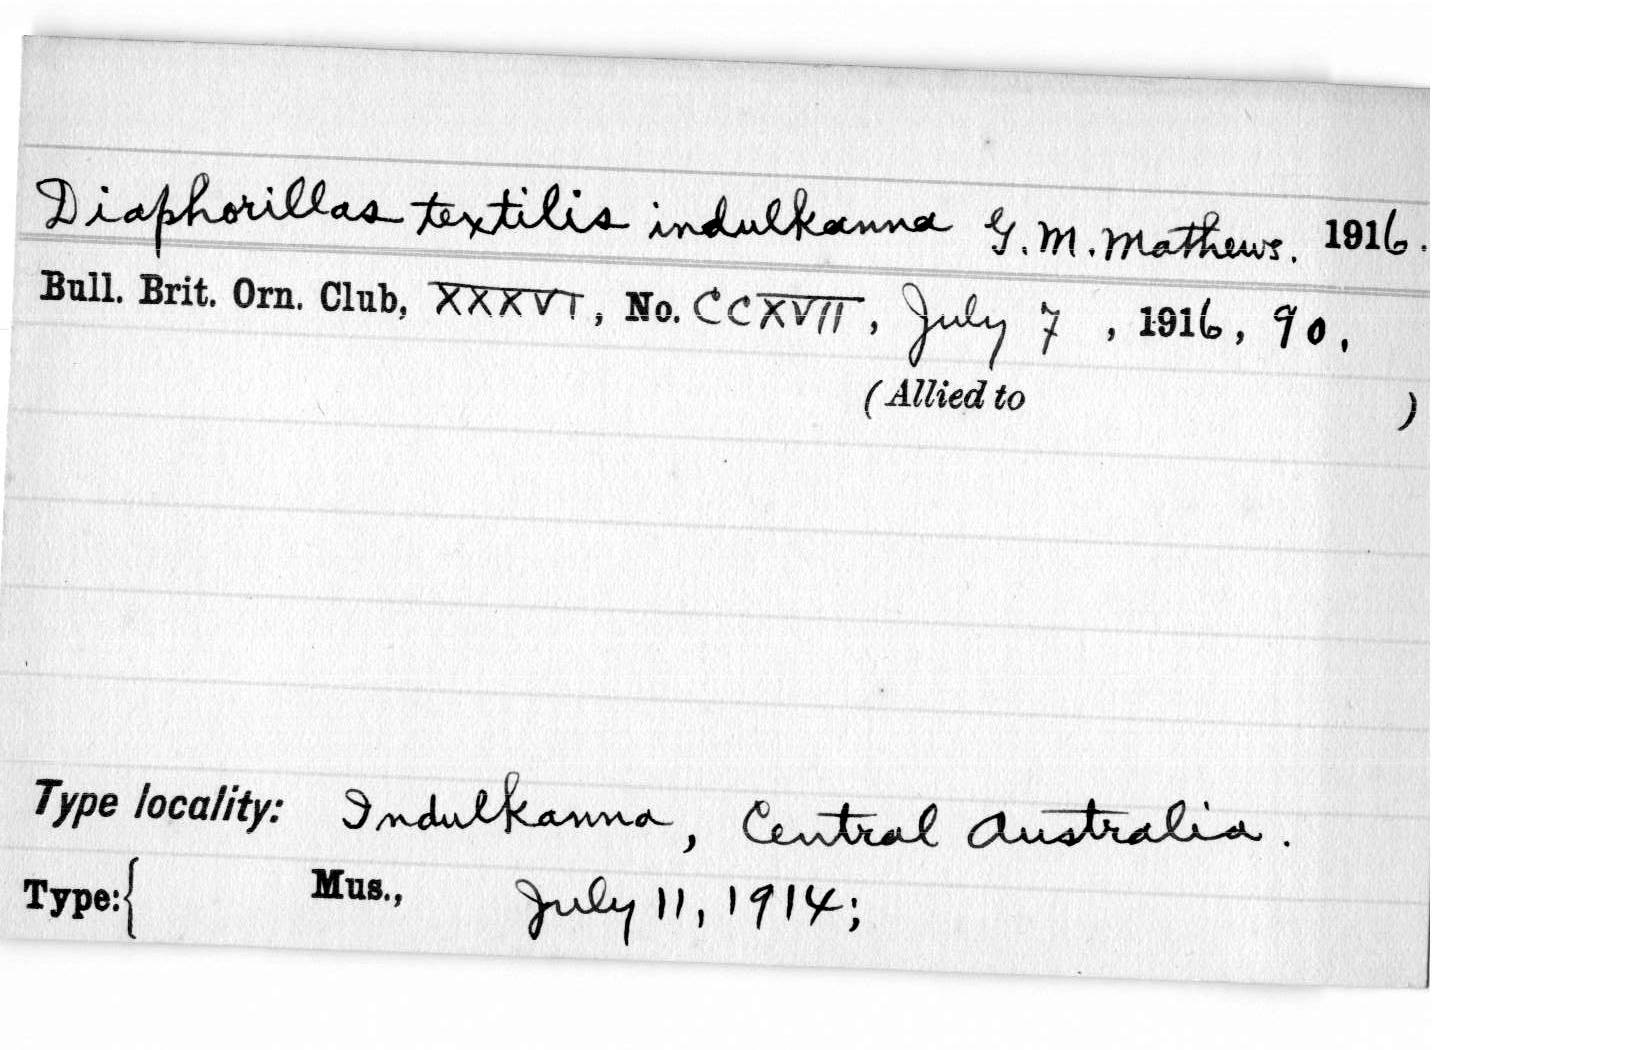 Diaphorillas textilis indulkanna G. M. Mathews. 1916.
Bull. Brit. Orn. Club, XXXVI, No. CCXVII, July 7, 1916, 90.
(Allied to )
Type locality: Indulkanna, Central Australia.
Type:{ Mus., July 11, 1914;